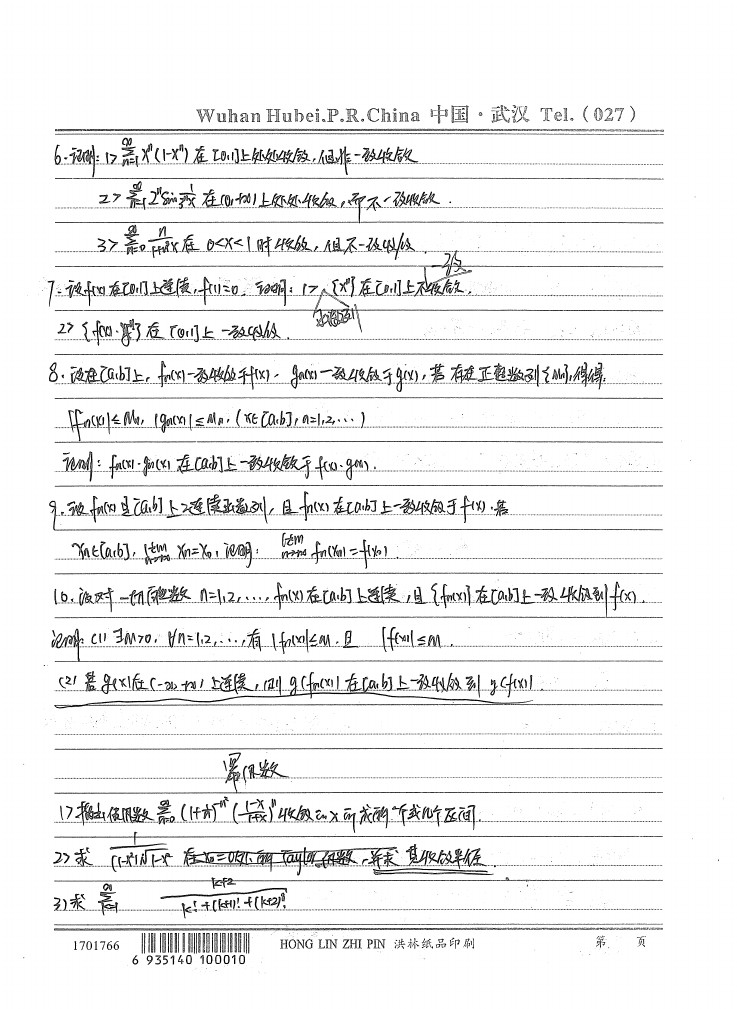 Wuhan Hubei.P.R.China 中国·武汉 Tel.(027)
6.证明: 1> ∑_{n=1}^∞ xⁿ(1-xⁿ) 在[0,1]上处处收敛,但非一致收敛
2> ∑_{n=1}^∞ 2ⁿ sin 1/(3ⁿx) 在(0,+∞)上处处收敛,而不一致收敛.
3> ∑_{n=0}^∞ n/(1+n³x) 在 0<x<1 时收敛,但不一致收敛.
一致
7.设f(x)在[0,1]上连续,f(1)=0. 证明: 1> {xⁿ}在[0,1]上不收敛.
2> {f(x)·xⁿ}在[0,1]上一致收敛.
8.设在[a,b]上,fn(x)一致收敛于f(x),gn(x)一致收敛于g(x),若存在正数列{Mn},使得
|fn(x)|≤Mn, |gn(x)|≤Mn, (x∈[a,b], n=1,2,...)
证明: fn(x)·gn(x)在[a,b]上一致收敛于f(x)·g(x).
9.设fn(x)是[a,b]上连续函数列,且fn(x)在[a,b]上一致收敛于f(x).若
xn∈[a,b], lim_{n→∞} xn=x₀,证明: lim_{n→∞} fn(xn)=f(x₀).
10.设对一切 n=1,2,..., fn(x)在[a,b]上连续,且{fn(x)}在[a,b]上一致收敛到f(x).
证明: (1) ∃M>0, ∀n=1,2,...,有|fn(x)|≤M.且 |f(x)|≤M.
(2) 若g(x)在(-∞,+∞)上连续,则g(fn(x))在[a,b]上一致收敛到g(f(x)).
幂级数
1>指出使级数 ∑_{n=0}^∞ (1+1/n)^{-n²} ((1-x)/(1+x))ⁿ 收敛的x所成的个或几个区间.
2>求 1/((1-x²)√(1-x²)) 在x₀=0处的Taylor级数,并求其收敛半径.
3)求 ∑_{k=1}^∞ (k+2)/(k!+(k+1)!+(k+2)!)
1701766
6 935140 100010
HONG LIN ZHI PIN 洪林纸品印刷
第 页